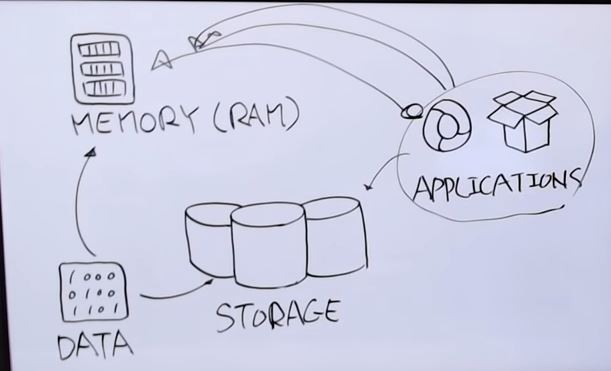 MEMORY (RAM)
APPLICATIONS
1000
0100
1101
STORAGE
DATA